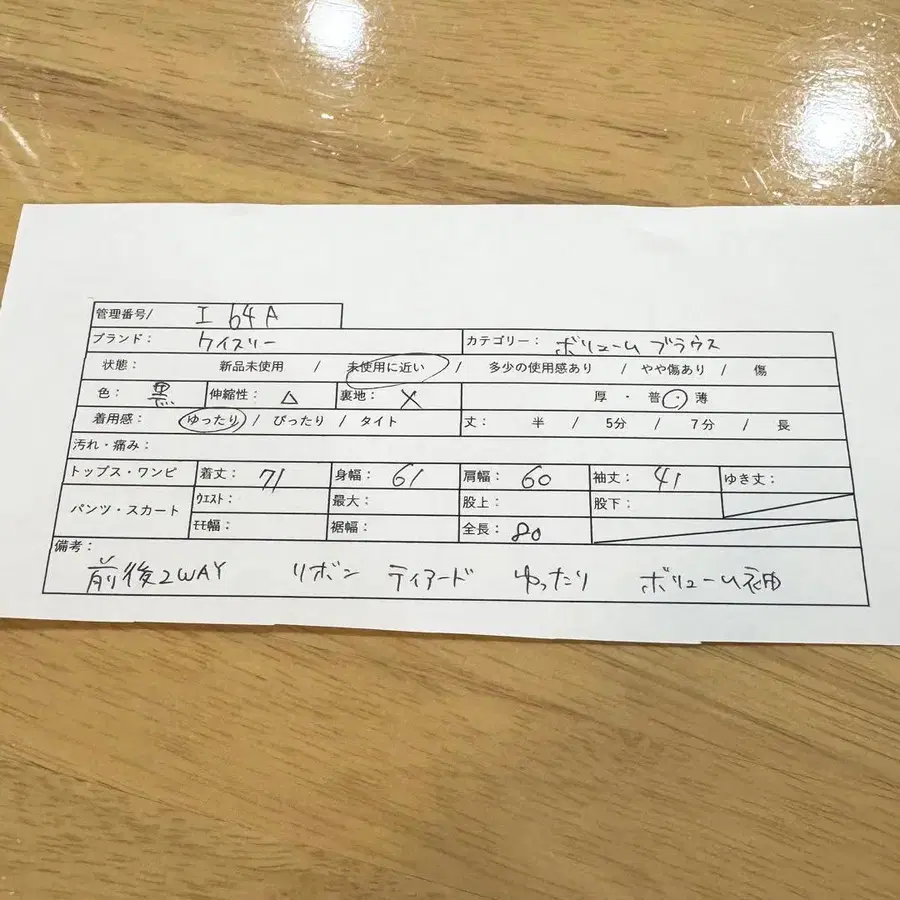 管理番号/ I 64A
ブランド： ケイスリー カテゴリー： ボリュームブラウス
状態： 新品未使用 / 未使用に近い / 多少の使用感あり / やや傷あり / 傷
色： 黒 伸縮性： △ 裏地： × 厚 ・ 普 ・ 薄
着用感： ゆったり / ぴったり / タイト 丈： 半 / 5分 / 7分 / 長
汚れ・痛み：
トップス・ワンピ 着丈： 71 身幅： 61 肩幅： 60 袖丈： 41 ゆき丈：
パンツ・スカート ウエスト： 最大： 股上： 股下：
モモ幅： 裾幅： 全長： 80
備考：
前後2WAY リボン ティアード ゆったり ボリューム袖